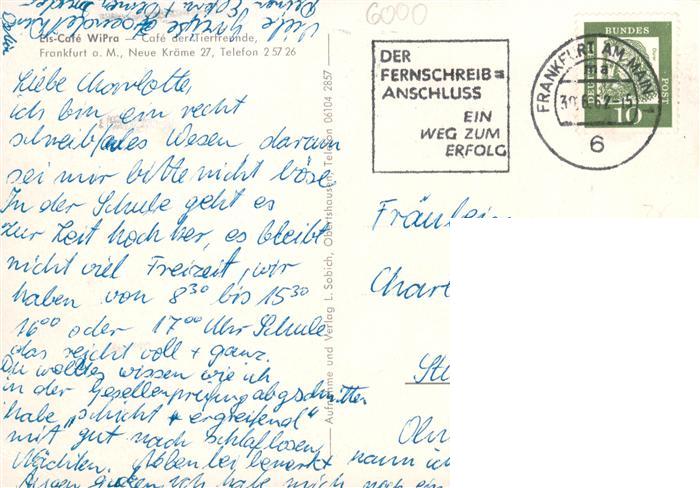 6000
Eis-Café WiPra — Café der Tierfreunde,
Frankfurt a. M., Neue Kräme 27, Telefon 2 57 26
Liebe Charlotte,
ich bin ein recht
schreibfaules Wesen darum
sei mir bitte nicht böse.
In der Schule geht es
zur Zeit hoch her, es bleibt
nicht viel Freizeit, wir
haben von 8³⁰ bis 15³⁰
16⁰⁰ oder 17⁰⁰ Uhr Schule
das reicht voll + ganz.
Du wolltest wissen wie ich
in der Gesellenprüfung abgeschnitten
habe „schlicht + ergreifend"
mit „gut nach schlaflosen
Nächten. Neben bei bemerkt kann ich
ich habe mich noch
Aufnahme und Verlag L. Sobich, Obertshausen, Telefon 06104 2857
DER
FERNSCHREIB=
ANSCHLUSS
EIN
WEG ZUM
ERFOLG
FRANKFURT AM MAIN 1
ma
30.6.62-15
6
DEUTSCHE
BUNDES
POST
10
Fräulein
Char